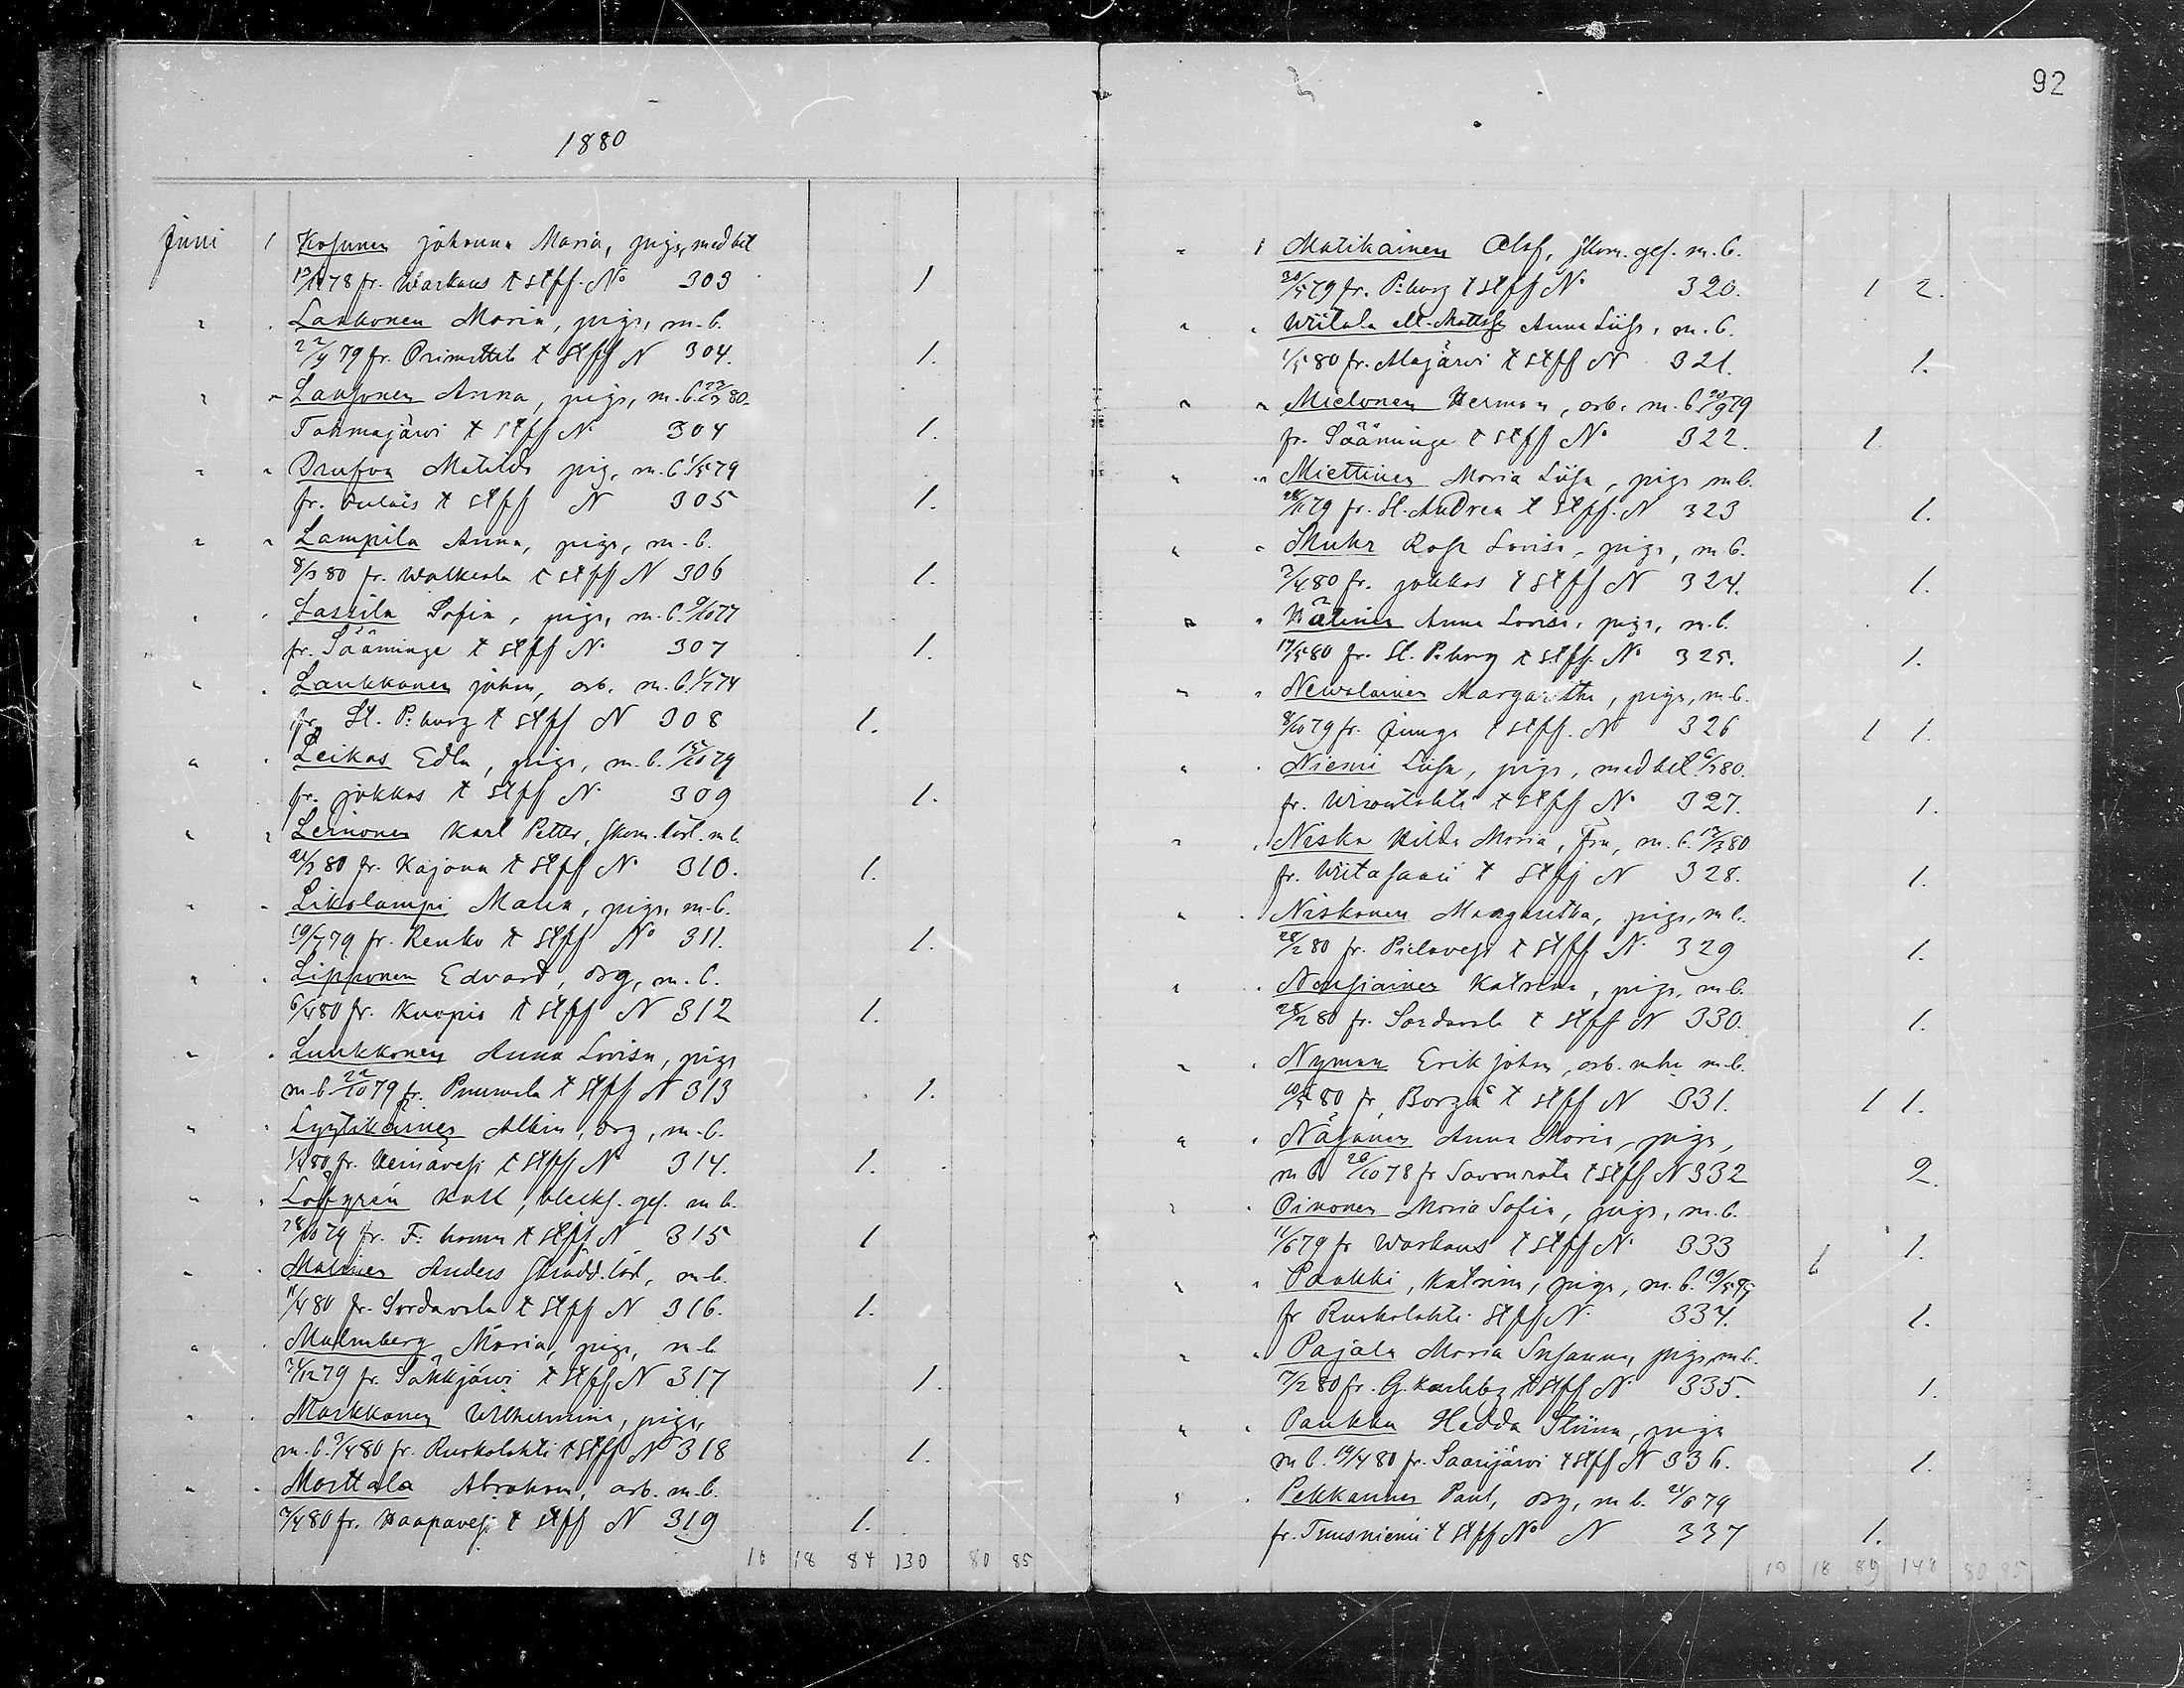 1880
Juni 1 Kosunen Johanna Maria, piga, med bet
13/1 78 fr. Warkaus t Stff. No 303 1
" " Laukonen Maria, piga, m. b.
22/4 79 fr. Orimattila t Stff N 304. 1.
" " Lausonen Anna, piga, m. b. 23/3 80.
Tohmajärvi t Stff N 304 1.
" " Drufva Matilda pig, m. b 1/5 79
fr. t Stff N 305 1.
" " Lampila Anna, piga, m. b.
8/3 80 fr. Walkeala t Stff N 306 1.
" " Lassila Sofia, piga, m. b. 9/10 77
fr. Sääminge t Stff N. 307 1.
" " Laukkanen Johan, arb. m. b. 1/7 74
fr. St. P:burg t Stff N 308 1.
" " Leikas Edla, piga, m. b. 15/10 79
fr. Jokkas t Stff N. 309 1.
" " Leinonen Karl Petter, skom. lärl. m b.
21/2 80 fr. Kajana t Stff No 310. 1.
" " Likolampi Maria, piga, m. b.
19/7 79 fr. Renko t Stff No 311. 1.
" " Lipponen Edvard, drg, m. b.
6/4 80 fr. Kuopio t Stff N 312 1.
" " Luukkonen Anna Lovisa, piga
m. b 22/10 79 fr. Puumala t Stff N 313 1.
" " Lyytikäinen Albin, drg, m. b.
1/4 80 fr. Heinävesi t Stff N 314. 1.
" " Löfgrén Karl, blecksl. ges. m b.
28/10 79 fr. F: hamn t Stff N 315 1
" " Malinen Anders skrädd. lärl, m. b.
11/4 80 fr. Sordavala t Stff N 316. 1.
" " Malmberg Maria, piga, m b
24/12 79 fr. Säkkjärvi t Stff N 317 1.
" " Markkanen Wilhelmina, piga,
m. b. 9/4 80 fr. Ruokolahti t Stff No 318 1.
" " Marttala Abraham, arb. m. b.
2/4 80 fr. Haapavesi t Stff N 319 1.
16 18 84 130 80 85
92
" 1 Matikainen Olof, skom. ges. m. b.
30/5 79 fr. P:burg t Stff N. 320. 1 2.
" " Wiitala M. Mattsf Anna Liisa, m. b.
1/5 80 fr. Alajärvi t Stff N 321. 1.
" " Mielonen Herman, arb. m. b. 20/9 79
fr. Sääminge t Stff No 322. 1.
" " Miettinen Maria Liisa, piga m b.
28/11 79 fr. St. Andrea t Stff. N 323 1.
" " Muhr Rosa Lovisa, piga, m b.
3/4 80 fr. Jokkas t Stff N 324. 1.
" " Anna Lovisa, piga, m. b.
17/5 80 fr. St. P:burg t Stff. No 325. 1.
" " Newalainen Margaretha, piga, m b.
8/10 79 fr. Jungs t Stff. N 326 1 1.
" " Niemi Liisa, piga, med bet 6/2 80.
fr. Wirowlahti t Stff No 327. 1.
" " Niska Hilda Maria, Fru, m. b. 17/3 80
fr. Wiitasaari t Stff N 328. 1.
" " Niskanen Margaretha, piga, m b.
28/2 80 fr. Pielavesi t Stff N 329 1.
" " Nousiainen Katrina, piga, m b.
28/2 80 fr. Sordavala t Stff N 330. 1.
" " Nyman Erik Johan, arb. m hu m b.
10/5 80 fr, Borgå t Stff N 331. 1 1.
" " Näsänen Anna Maria, piga,
m b 26/10 78 fr Savonranta t Stff N 332 2.
" " Oinonen Maria Sofia, piga, m. b.
11/6 79 fr Warkaus t Stff N. 333 1.
" " Paakki, Katrina, piga, m. b. 19/5 79
fr Ruokolahti Stff N. 334. 1.
" " Pajala Maria Susanna, piga, m b.
7/2 80 fr. G. Karleby t Stff N 335. 1.
" " Paukku Hedda Stiina, piga
m b. 19/4 80 fr. Saarijärvi t Stff N 336. 1.
" " Pekkarinen Paul, drg, m b. 21/6 79
fr. Tuusniemi t Stff No N 337 1.
19 18 89 148 80 95